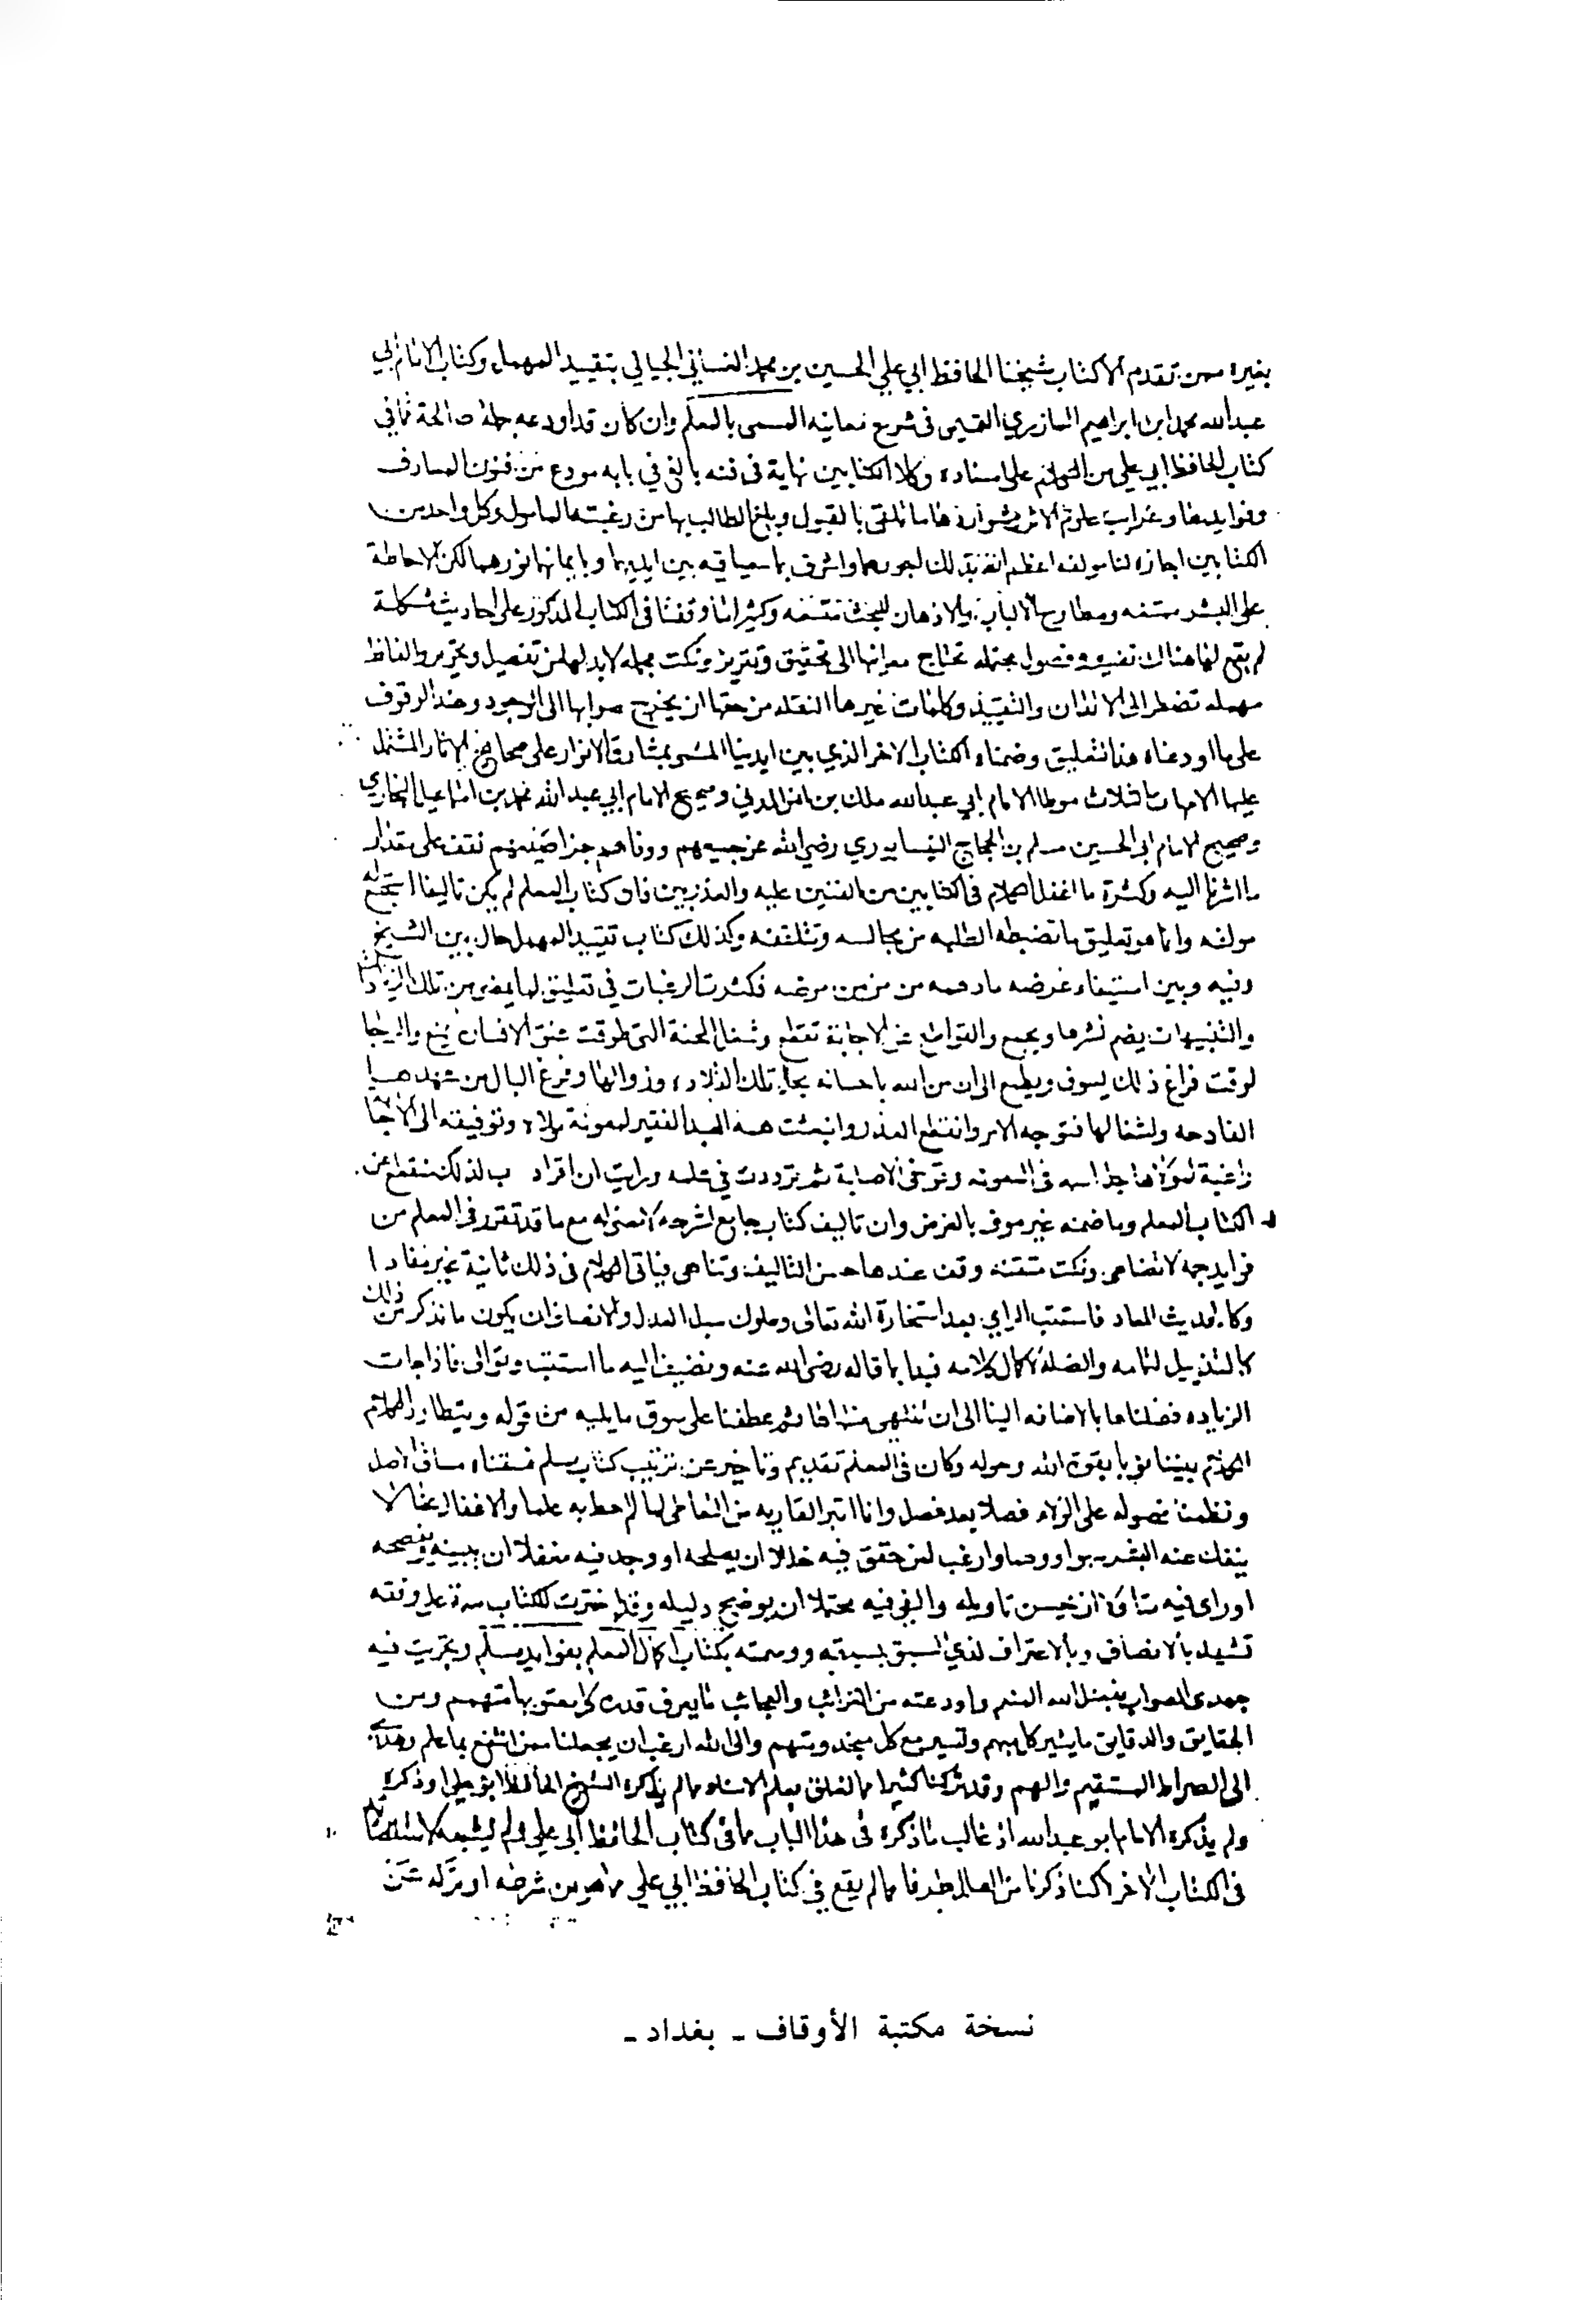 بغيره ممن تقدم الا كتاب شيخنا الحافظ ابي علي الحسين بن محمد الغساني الجياني بتقييد المهمل وكتاب الامام ابي
عبدالله محمد ابن ابراهيم المازري التميمي فى شرح معانيه المسمى بالمعلم وان كان قد اودعه جملة صالحة مما في
كتاب الحافظ ابي علي من الكلام على اسناده وكلا الكتابين نهاية فى فنه بالغ في بابه مودع من فنون المعارف
وفوايدها وغرايب علوم الاثر وشواردها ما تلقى بالقبول وبلغ الطالب بها من رغبته المامول وكل واحد من
الكتابين اجازه لنا مولفه بين ايديهما وبايمانهما نورهما لكن الاحاطة
على البشر ممتنعه ومطارح الالباب والاذهان للبحث متسعه وكثيرا ما وقفنا فى الكتاب المذكور على احاديث مشكلة
لم يقع لها هناك تفسير وفصول محتمله تحتاج معانيها الى تحقيق وتقرير ونكت مجمله لابد لها من تفصيل وتحرير والفاظ
مهمله تضطر الى الاتقان والتقييد وكلمات غيرها النقله من حقها ان يخرج صوابها الى الوجود وعند الوقوف
على ما اودعناه هذا التعليق وضمناه الكتاب الاخر الذي بين ايدينا المسمى بمشارق الانوار على صحاح الاثار المشتمل
عليها الامهات الثلاث موطا الامام ابي عبدالله ملك بن انس المدني وصحيح الامام ابي عبد الله محمد بن اسماعيل البخاري
وصحيح الامام ابى الحسين مسلم بن الحجاج النيسابوري رضي الله عن جميعهم ووفاهم جزا صنيعهم تقف على مقدار
ما اشرنا اليه وكثرة ما اغفل الكلام فى الكتابين من الفنين عليه والعذر بين فان كتاب المعلم لم يكن تاليفا استجمع له
مولفه وانما هو تعليق ما تضبطه الطلبه من مجالسه وتتلقفه وكذلك كتاب تقييد المهمل حال بين الشيخ
وبين استيفاء غرضه ما دهمه من مزمن مرضه فكثرت الرغبات في تعليق لما يمضى من تلك الزيادات
والتنبيهات يضم نشرها ويجمع والقواطع عن الاجابة تقطع وشغل المحنة التى طوقت عنق الانسان تمنع والرجا
لوقت فراغ ذلك يسوف ويطمع الى ان من الله باحسانه بحل تلك القلاده وزوالها وفرغ البال من عهدها
الفادحه واشغالها فتوجه الامر وانقطع العذر وانبعثت همة العبد الفقير لمعونة مولاه وتوفيقه الى الاجابة
راغبة لمولاها جل اسمه فى المعونه وتوخى الاصابة ثم ترددت في عمله ورايت ان افراد لذلك منقطع عن
الكتاب المعلم وما ضمنه غير موف بالغرض وان تاليف كتاب جامع لشرحه لا معنى له مع ما قد تقرر فى المعلم من
فوايد جمه لا تضاهى ونكت متقنه وقف عندها حسن التاليف وتناهى فياتى الكلام فى ذلك ثانية غير مفاد
وكالحديث المعاد فاستتب الراي بعد استخارة الله تعالى وسلوك سبل العدل والانصاف ان يكون ما نذكر من ذلك
كالتذييل لتمامه والصلة لاكمال كلامه فنبدا بما قاله رضى الله عنه ونضيف اليه ما استتب وتوالى فاذا جات
الزياده فصلناها بالاضافه الينا الى ان تنتهى ثم عطفنا على سوق ما يليه من قوله ويتطارد الكلام
بيننا نوبا بقوة الله وحوله وكان فى المعلم تقديم وتاخير عن ترتيب كتاب مسلم فسقناه مساق الاصل
ونظمنا فصوله على الولاء فصلا بعد فصل وانا ابرا لقاريه من التعاطى لما لم احط به علما والاغفال لما لا
ينفك عنه البشر سهوا ووهما وارغب لمن حقق فيه خللا ان يصلحه او وجد فيه مغفلا ان يبينه ويفصحه
او راى فيه متاولا ان يحسن تاويله والفى فيه محتملا ان يوضح دليله وقد اخترت للكتاب سمة على وفقه
تشهد بالانصاف وبالاعتراف لذي السبق بسبقه ووسمته بكتاب اكمال المعلم بفوايد مسلم وتحريت فيه
جهدى الصواب بفضل الله المنعم واودعته من الغرائب والعجائب ما يعرف قدره كل معتن بها متهمم ومن
الحقايق والدقايق ما يشير كل مبهم وتسير مع كل منجد ومتهم والى الله ارغب ان يجعلنا ممن انتفع بما علم وهدي
الى الصراط المستقيم والهم وقد تركنا كثيرا مما تعلق بعلم الاسناد مما لم يذكره الشيخ الحافظ ابو علي او ذكره
ولم يذكره الامام ابو عبدالله اذ غالب ما ذكره فى هذا الباب مما فى كتاب الحافظ ابي علي ولم نتبعه
فى الكتاب الاخر لكنا ذكرنا من العلل طرفا مما لم يقع في كتاب الحافظ ابي علي مما هو من شرطه او تركه عن
نسخة مكتبة الأوقاف ــ بغداد ــ